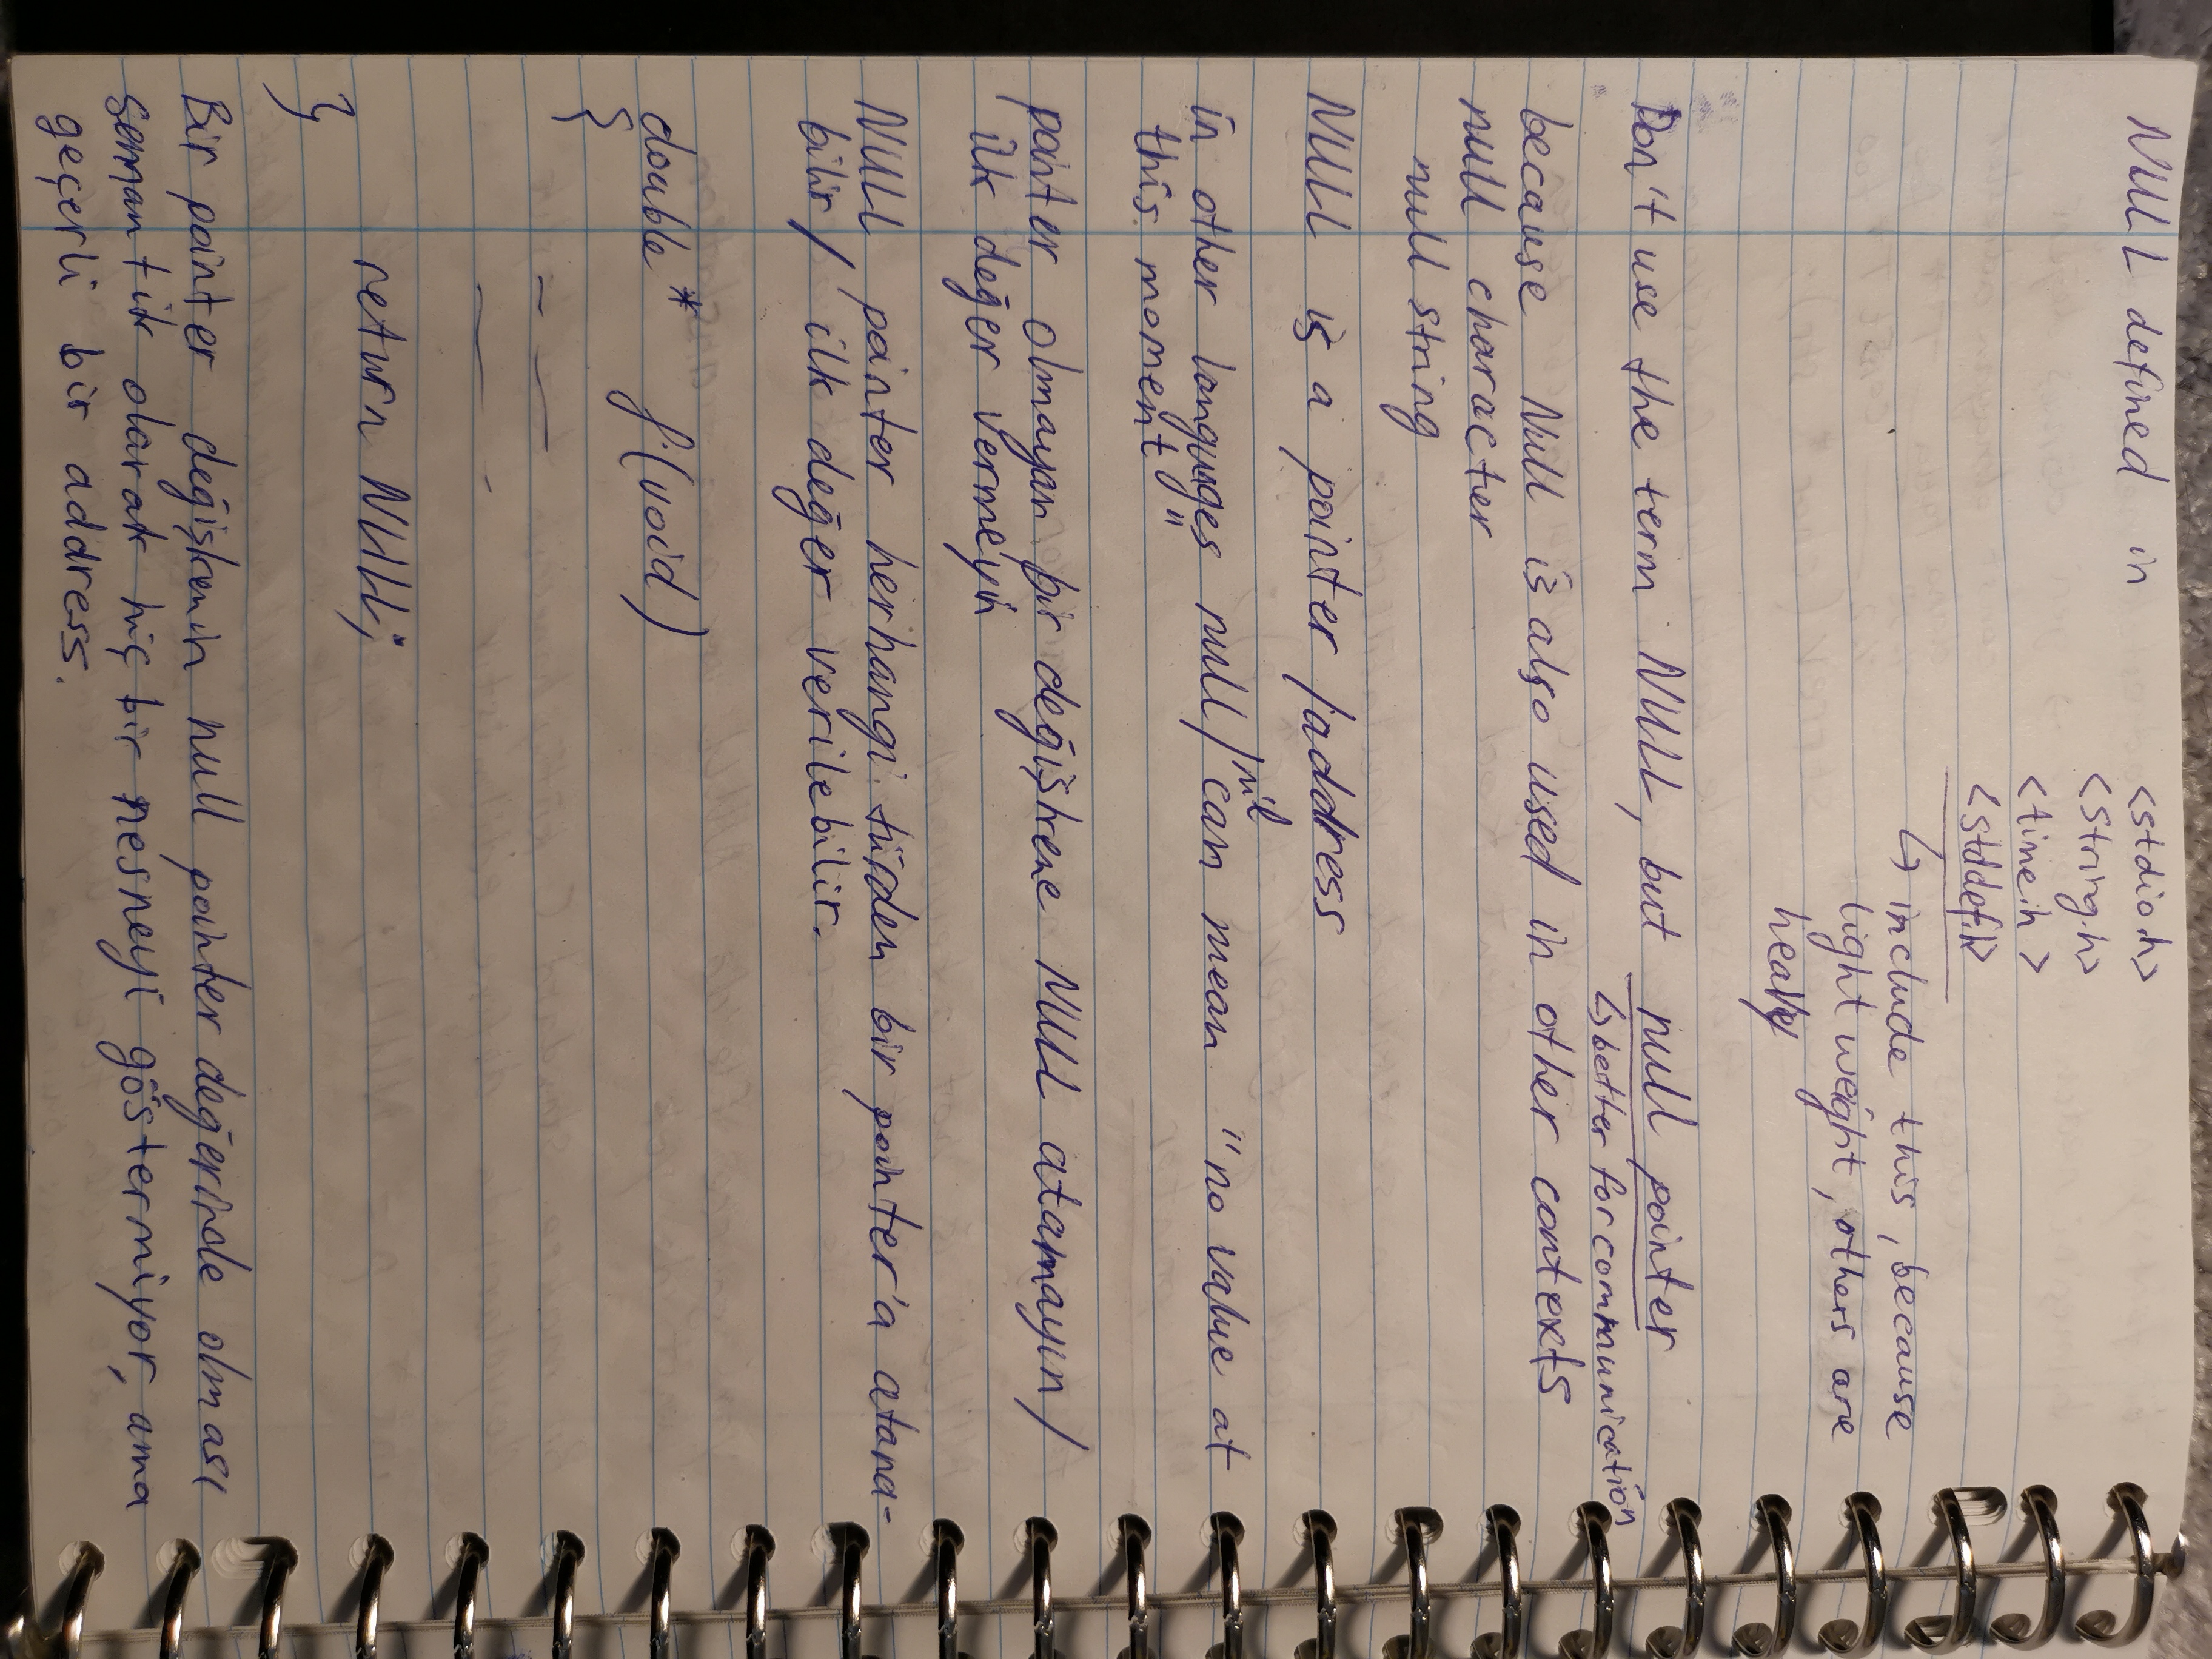 NULL defined in <stdio.h>
<string.h>
<time.h>
<stddef.h>
↳ include this, because
light weight, others are
heavy
Don't use the term NULL, but null pointer
↳ better for communication
because Null is also used in other contexts
null character
null string
NULL is a pointer /address
in other languages null/nil can mean "no value at
this moment"
pointer olmayan bir değişkene NULL atamayın/
ilk değer vermeyin
NULL pointer herhangi türden bir pointer'a atana-
bilir/ ilk değer verilebilir.
double* f(void)
{
return NULL;
}
Bir pointer değişkenin null pointer değerinde olması
semantik olarak hiç bir nesneyi göstermiyor, ama
geçerli bir address.